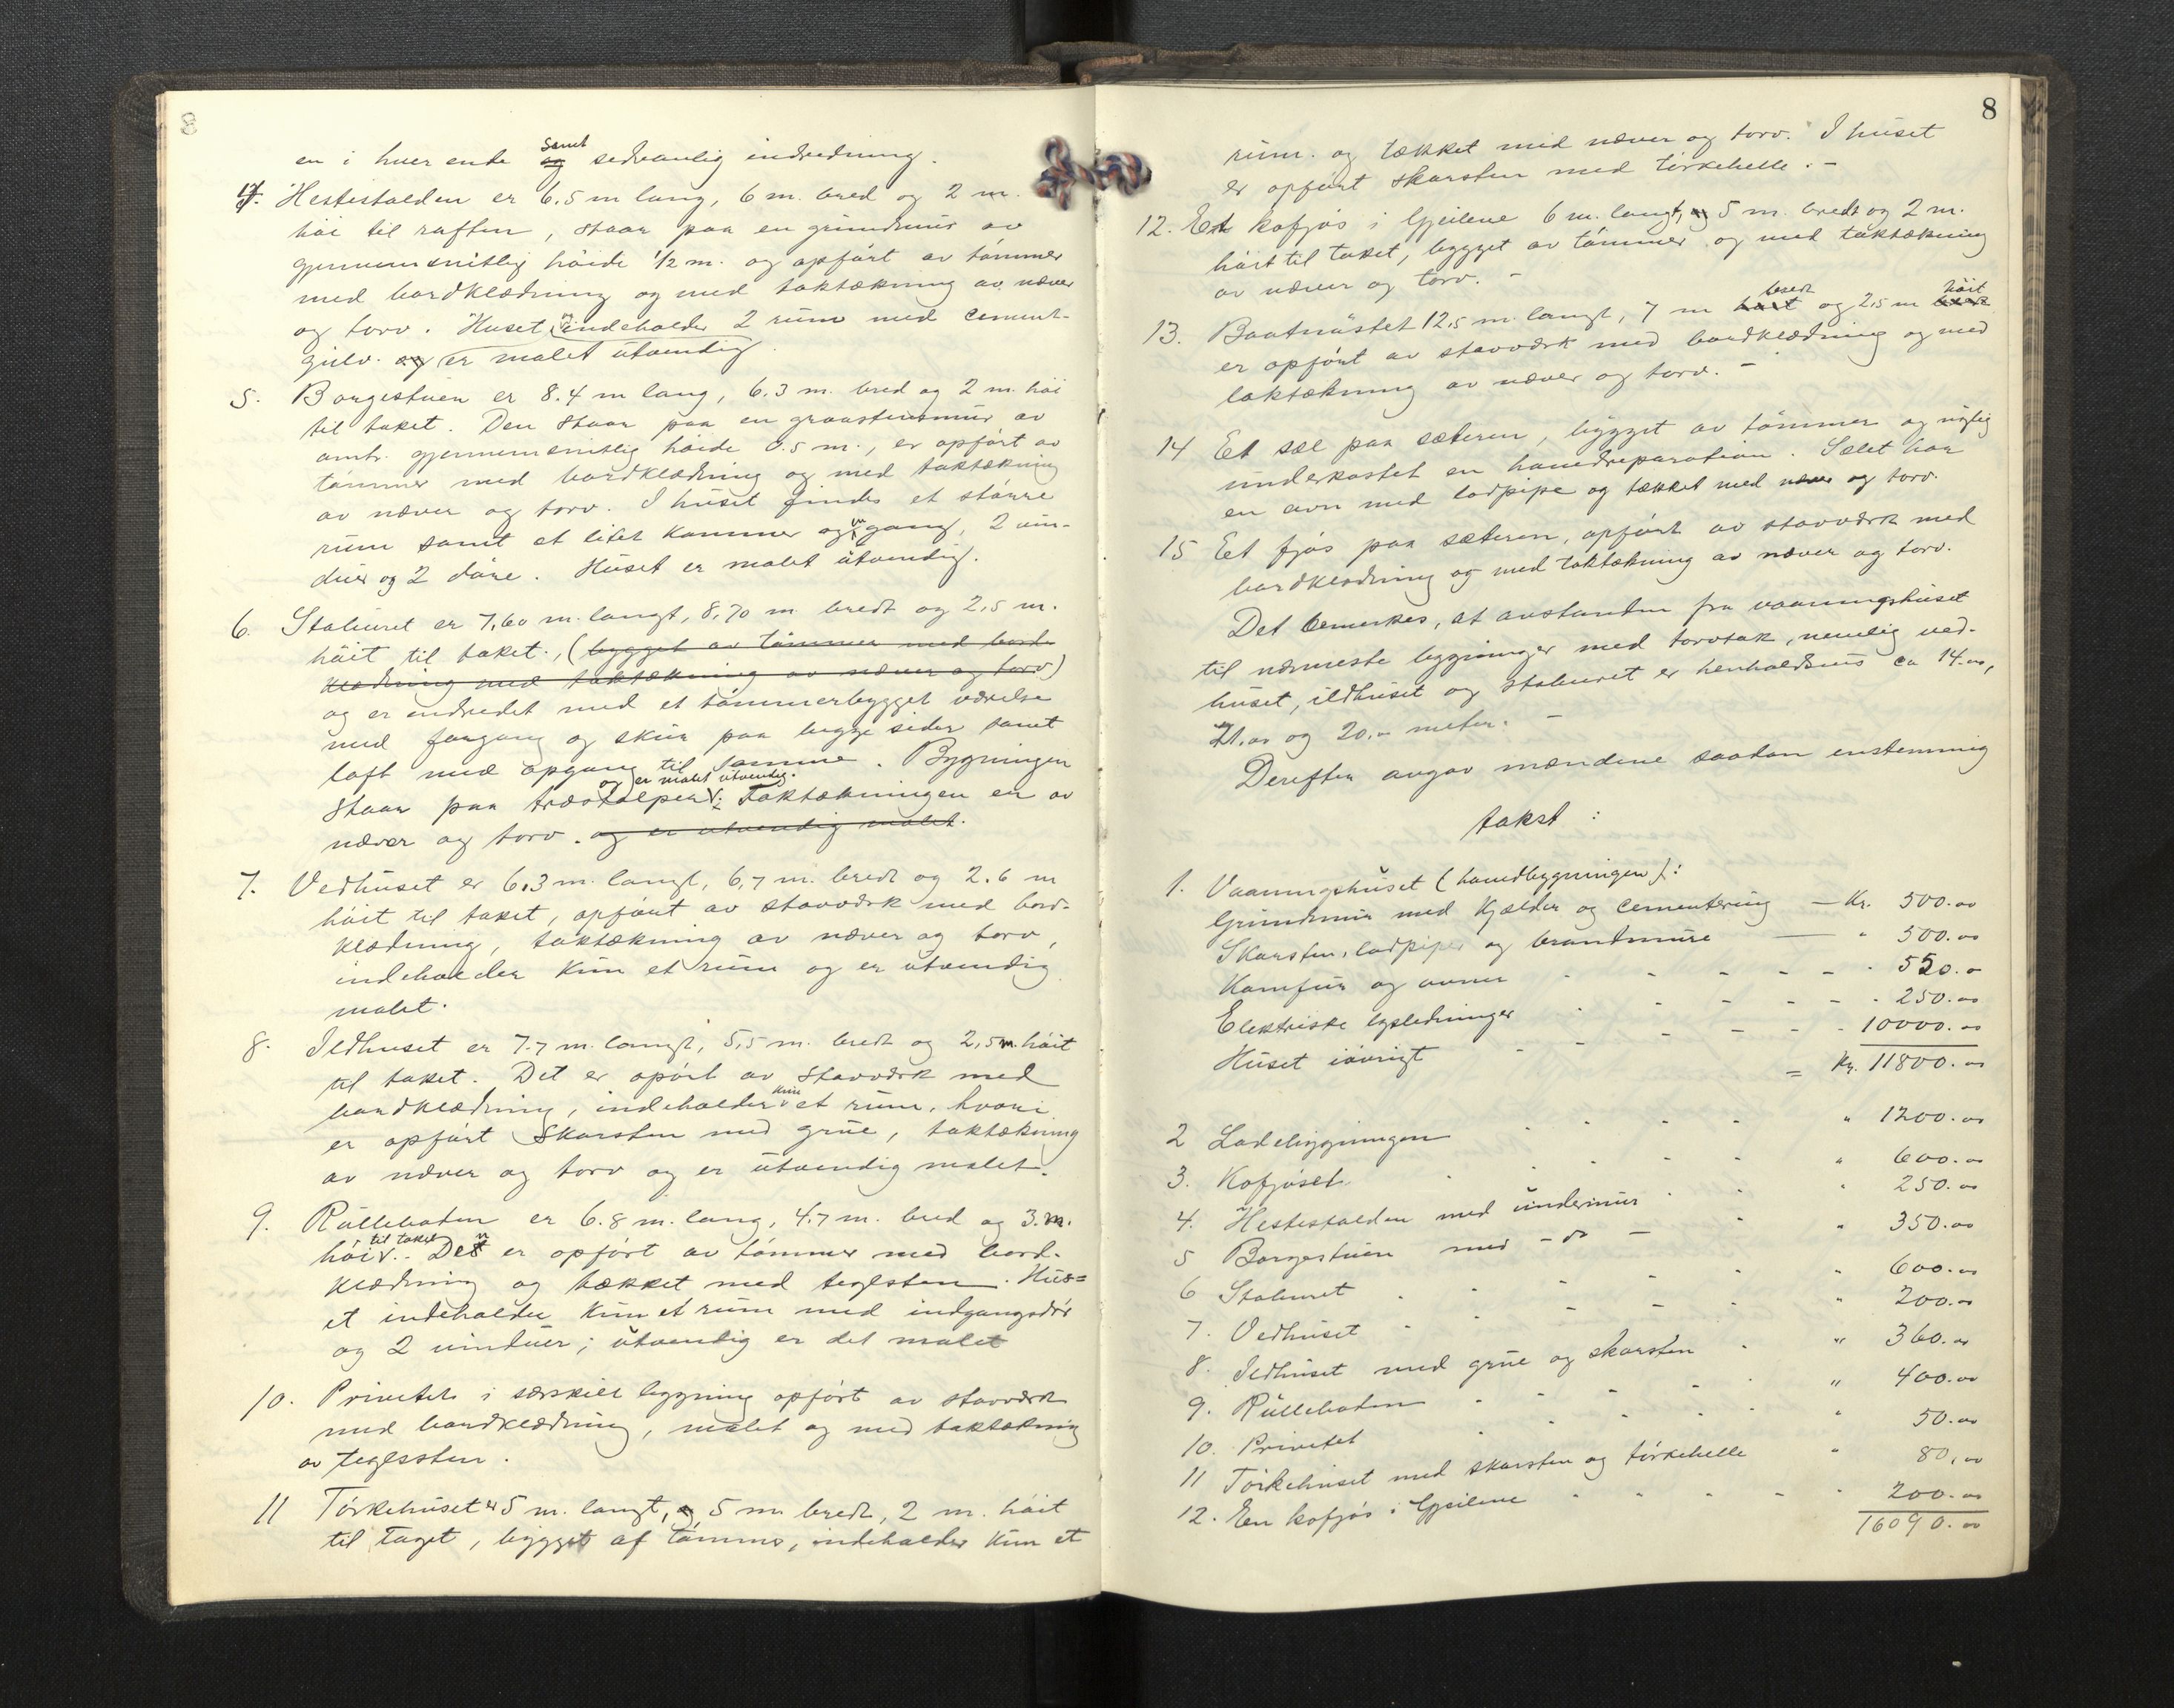 8
en i hver ende og samt sedvanlig indredning.
4. Hestestalden er 6.5 m lang, 6 m. bred og 2 m.
høi til raften, staar paa en grundmur av
gjennemsnitlig høide 1/2 m. og opført av tømmer
med bordklædning og med taktækning av næver
og torv. Huset indeholder 2 rum med cement-
gulv. og er malet utvendig.
5. Borgestuen er 8.4 m lang, 6.3 m. bred og 2 m. høi
til taket. Den staar paa en graastensmur av
omtr. gjennemsnitlig høide 0.5 m., er opført av
tømmer med bordklædning og med taktækning
av næver og torv. I huset findes et større
rum samt et litet kammer og en gang, 2 vin-
duer og 2 døre. Huset er malet utvendig.
6. Staburet er 7,60 m. langt, 8,70 m. bredt og 2,5 m.
høit til taket., (bygget av tømmer med bord-
klædning med taktækning av næver og torv)
og er indredet med et tømmerbygget værelse
med forgang og skur paa begge sider samt
loft med opgang til samme. Bygningen
staar paa træstolper og er malet utvendig. Taktækningen er av
næver og torv. og er utvendig malet.
7. Vedhuset er 6,3 m. langt, 6,7 m. bredt og 2.6 m
høit til taket, opført av stavværk med bord-
klædning, taktækning av næver og torv,
indeholder kun et rum og er utvendig
malet.
8. Ildhuset er 7.7 m. langt, 5,5 m. bredt og 2,5 m. høit
til taket. Det er opørt av stavværk med
bordklædning, indeholder kun et rum, hvori
er opført skorsten med grue, taktækning
av næver og torv og er utvendig malet.
9. Rulleboden er 6.8 m. lang, 4.7 m. bred og 3. m.
høi til taket. Den er opført av tømmer med bord-
klædning og tækket med teglsten. Hus=
et indeholder kun et rum med indgangsdør
og 2 vinduer; utvendig er det malet
10. Privetet i særskilt bygning opført av stavværk
med bordklædning, malet og med taktækning
av teglssten.
11 Tørkehuset er 5 m. langt, og 5 m bredt, 2 m. høit
til Taget, bygget af tømmer, indeholder kun et
8
rum. og tækket med næver og torv. I huset
er opført skorsten med tørkehelle. -
12. Et kofjøs i Gjeilene 6 m. langt, og 5 m. bredt og 2 m.
høit til taket, bygget av tømmer og med taktækning
av næver og torv. -
13. Baatnøstet 12,5 m. langt, 7 m høit bredt og 2,5 m bredt høit
er opført av stavværk med bordklædning og med
taktækning av næver og torv. -
14 Et sæl paa sæteren, bygget av tømmer og nylig
underkastet en hovedreparation. Sælet har
en ovn med lodpipe og tækket med næver og torv.
15 Et fjøs paa sæteren, opført av stavværk med
bordklædning og med taktækning av næver og torv.
Det bemerkes, at avstanden fra vaaningshuset
til nærmeste bygninger med torvtak, nemlig ved-
huset, ildhuset og staburet er henholdsvis ca 14.00,
21.00 og 20.00 meter. -
Derefter avgav mændene saadan enstemmig
takst :
1. Vaaningshuset (hovedbygningen):
Grundmur med kjælder og cementering — Kr. 500.00
Skorsten, lodpiper og brandmure — " 500.00
Komfur og ovner - - - - - 550.00
Elektriske lysledninger - - - - - 250.00
Huset iøvrigt - - - - - 10000.00
= Kr. 11800.00
2 Ladebygningen - - - - " 1200.00
3. Kofjøset - - - - " 600.00
4. Hestestalden med undermur - - " 250.00
5 Borgestuen med - do - - " 350.00
6 Staburet - - - - " 600.00
7. Vedhuset - - - - " 200.00
8. Ildhuset med grue og skorsten - " 360.00
9. Rulleboden - - - - " 400.00
10. Privetet - - - - " 50.00
11 Tørkehuset med skorsten og tørkehelle " 80,00
12. En kofjøs i Gjeilene - - - - 200.00
16090.00